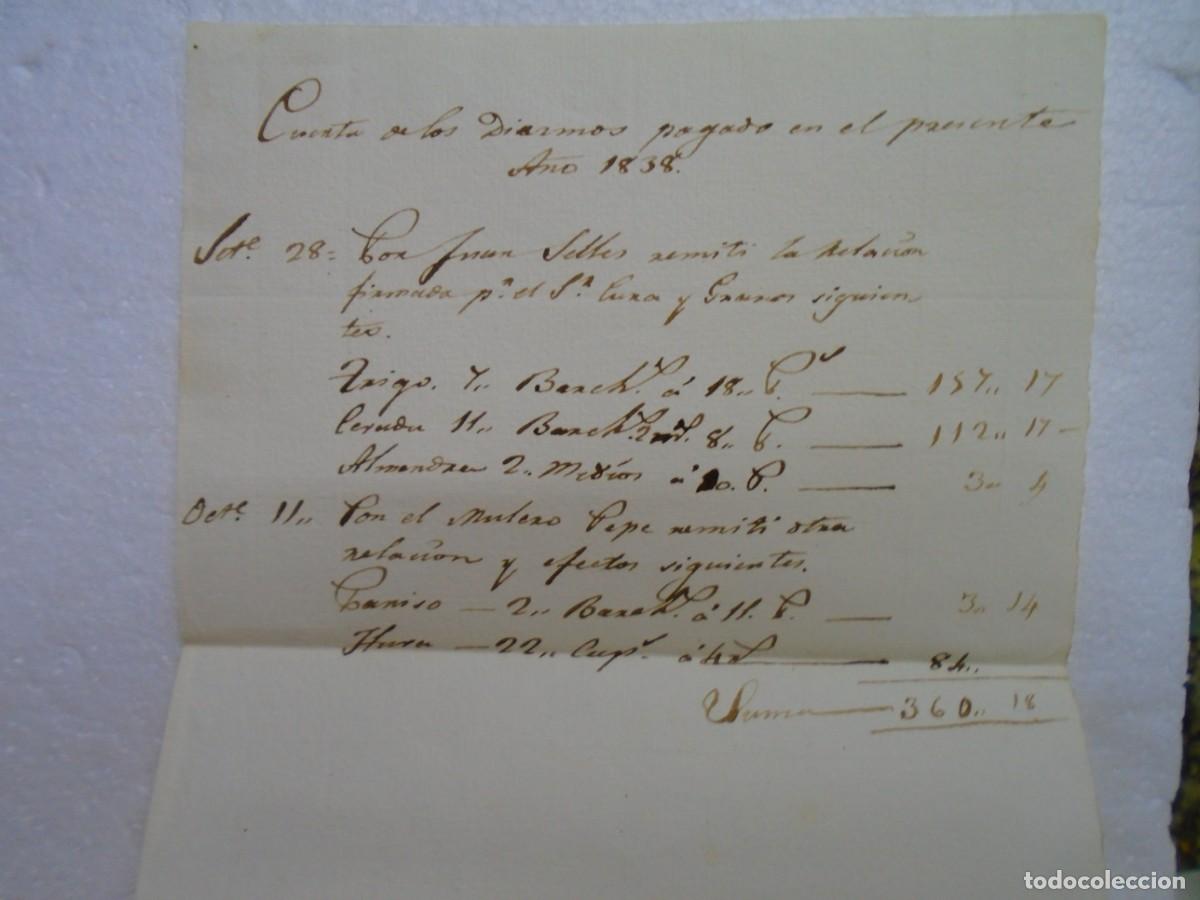 Cuenta de los Diezmos pagado en el presente
Año 1838.
Sete. 28= Por Juan Selles remiti la Relacion
firmada pr. el Sr. Cura y Granos siguien
tes.
Trigo. 7,, Barchs. á 18,, Ps. — 157,, 17
Cevada 11,, Barchs. 8,, P. — 112,, 17—
Almendra 2,, Medios á P. — 3,, 4
Octe. 11,, Por el Mulero Pepe remiti otra
relacion y efectos siguientes.
Paniso — 2,, Barchs. á 11. P. — 3,, 14
— 22,, á 4 — 84,,
Suma — 360,, 18
todocoleccion